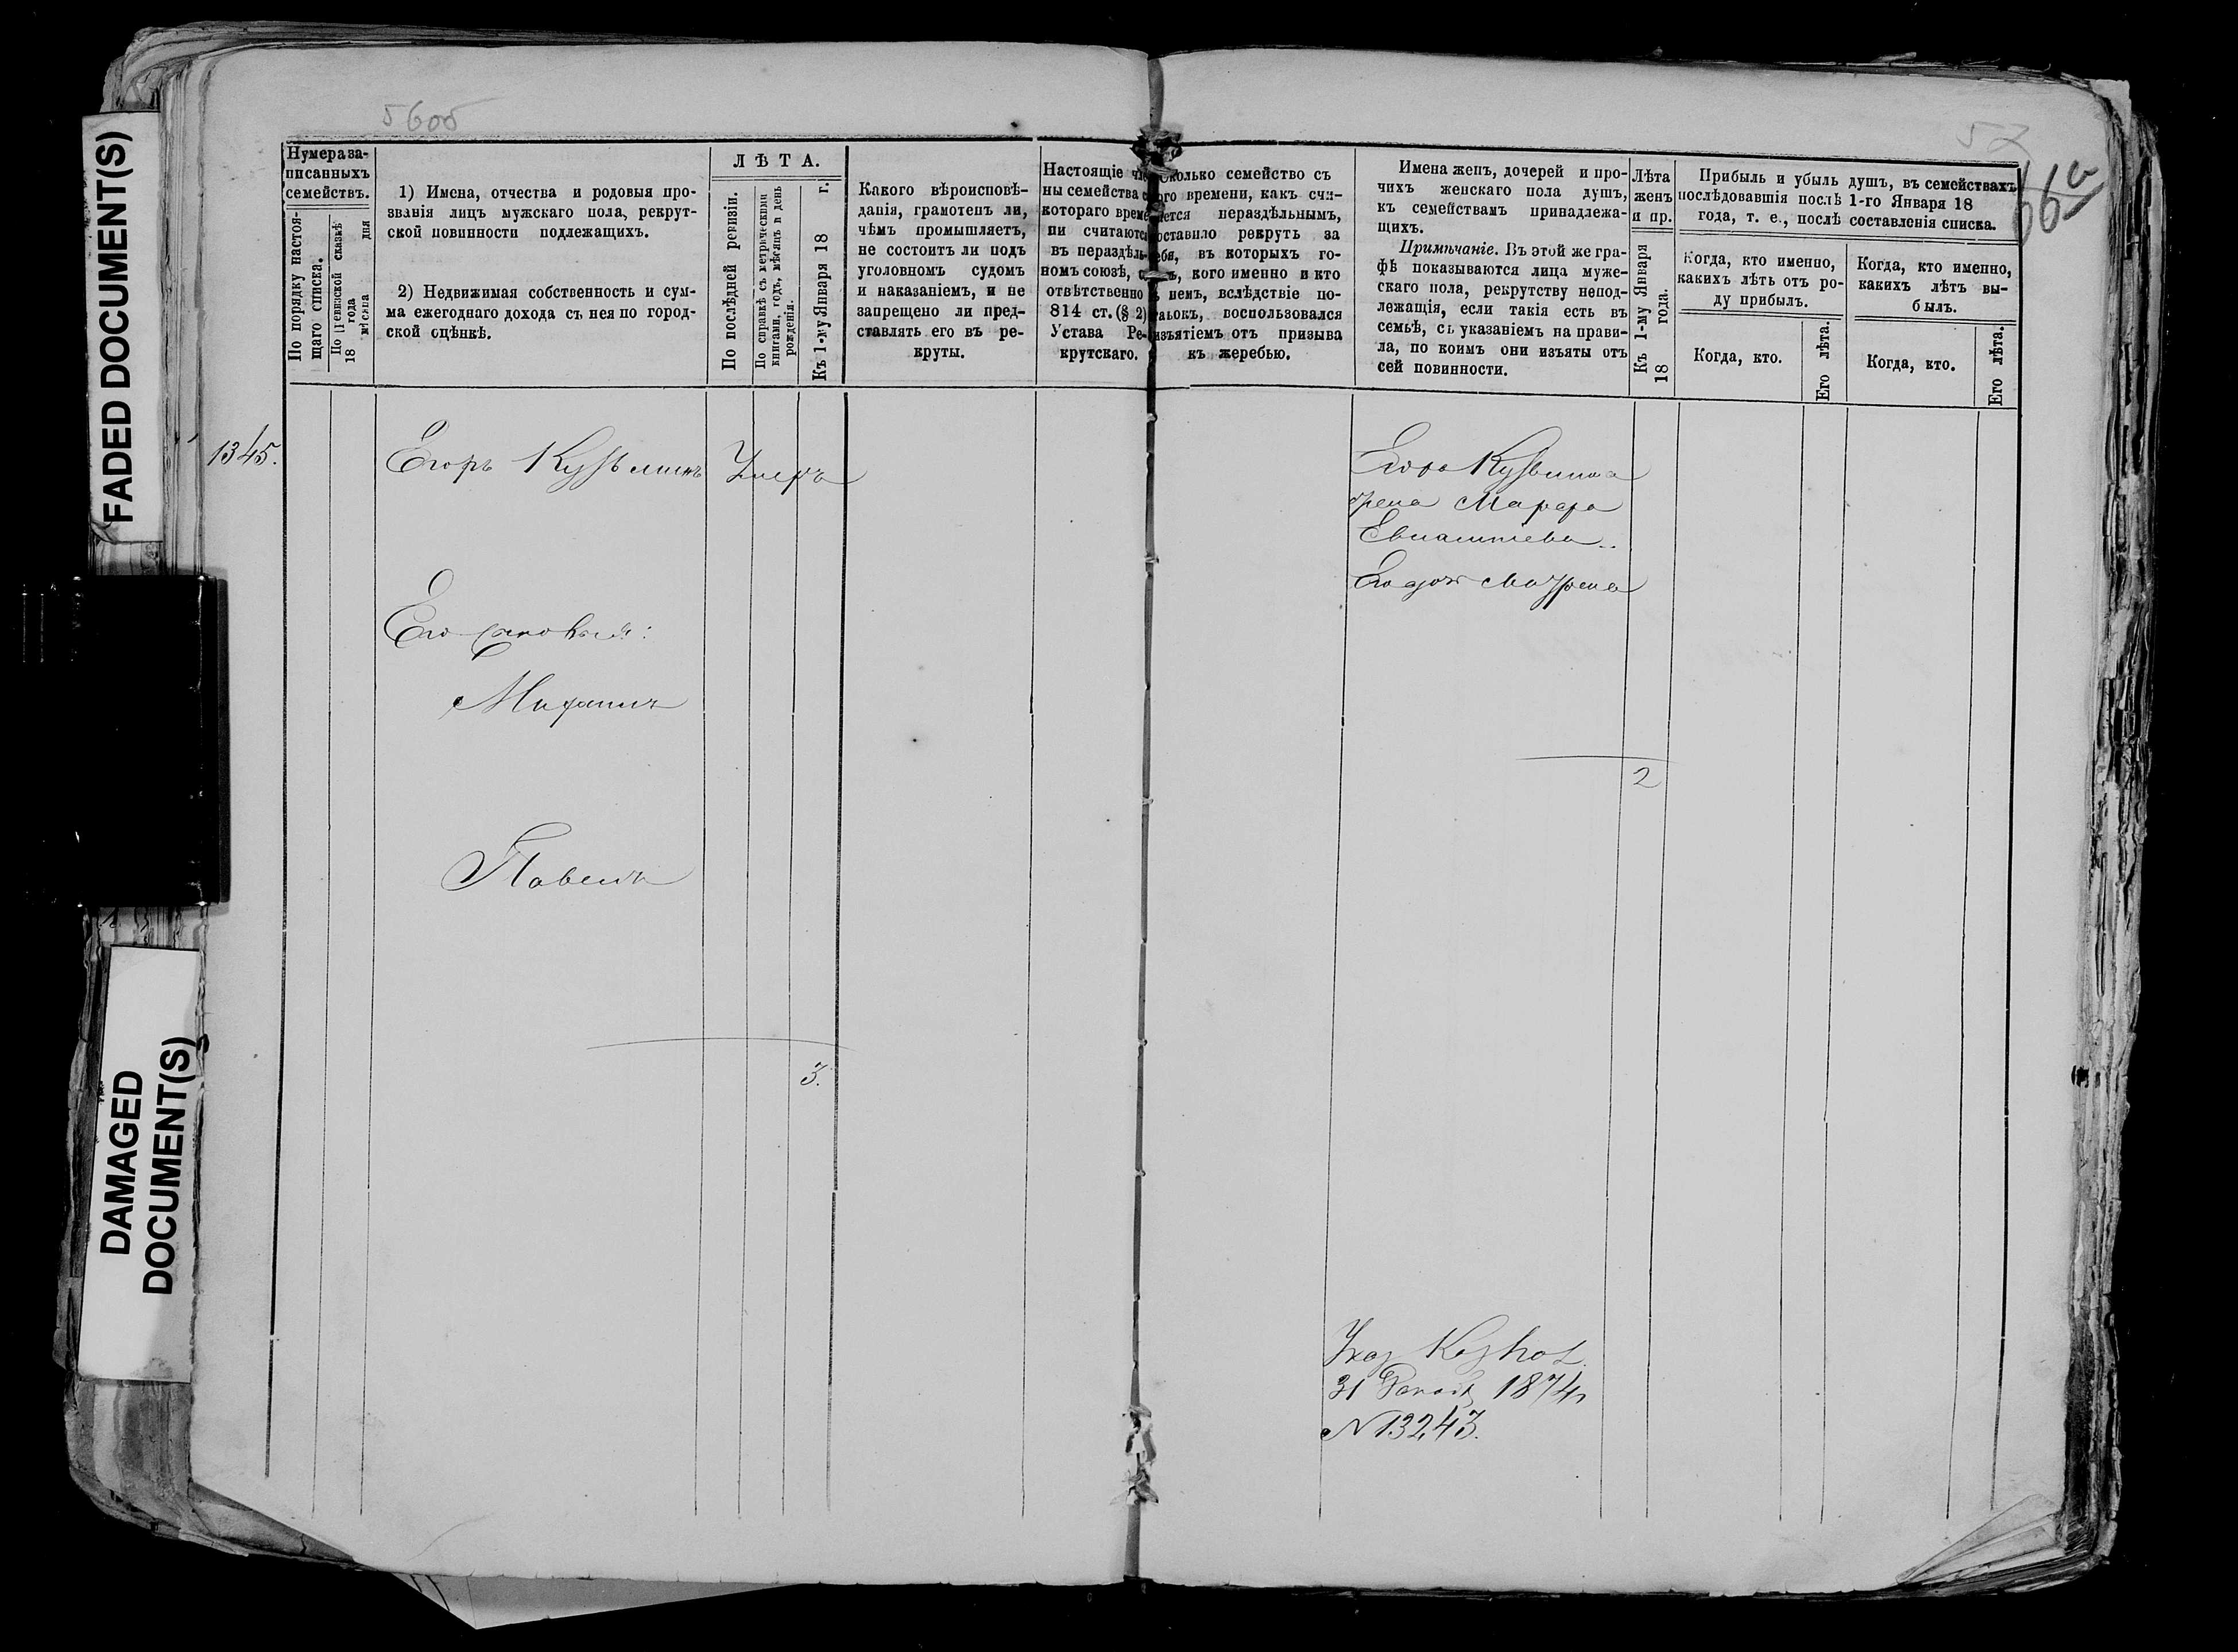 FADED DOCUMENT(S)
DAMAGED
DOCUMENT(S)
5605
Нумера за-
писанныхъ
семействъ.
По порядку настоя-
щаго списка.
По ревизской сказкѣ
18 года
мѣсяца дня
1) Имена, отчества и родовыя про-
званія лицъ мужскаго пола, рекрут-
ской повинности подлежащихъ.
2) Недвижимая собственность и сум-
ма ежегоднаго дохода съ нея по город-
ской оцѣнкѣ.
ЛѢТА.
По послѣдней ревизіи.
По справкѣ съ метрическими
книгами, годъ, мѣсяцъ и день
рожденія.
Къ 1-му Января 18 г.
Какого вѣроисповѣ-
данія, грамотенъ ли,
чѣмъ промышляетъ,
не состоитъ ли подъ
уголовномъ судомъ
и наказаніемъ, и не
запрещено ли пред-
ставлять его въ ре-
круты.
Настоящіе чле
ны семейства с
котораго време
ни считаютс
въ нераздѣль-
номъ союзѣ,
отвѣтственно
814 ст. (§ 2)
Устава Ре-
крутскаго.
Сколько семейство съ
ого времени, какъ счи-
ается нераздѣльнымъ,
оставило рекрутъ за
ебя, въ которыхъ го-
ъ, кого именно и кто
немъ, вслѣдствіе по-
воспользовался
изъятіемъ отъ призыва
къ жеребью.
Имена женъ, дочерей и про-
чихъ женскаго пола душъ,
къ семействамъ принадлежа-
щихъ.
Примѣчаніе. Въ этой же гра-
фѣ показываются лица муже-
скаго пола, рекрутству непод-
лежащія, если такія есть въ
семьѣ, съ указаніемъ на прави-
ла, по коимъ они изъяты отъ
сей повинности.
Лѣта
женъ
и пр.
Къ 1-му Января
18 года.
Прибыль и убыль душъ, въ семействахъ
послѣдовавшія послѣ 1-го Января 18
года, т. е., послѣ составленія списка.
Когда, кто именно,
какихъ лѣтъ отъ ро-
ду прибылъ.
Когда, кто.
Его лѣта.
Когда, кто именно,
какихъ лѣтъ вы-
былъ.
Когда, кто.
Его лѣта.
52
66
1345.
Егоръ Кузьминъ Умеръ
Его сыновья:
Михаилъ
Павелъ
3.
Егора Кузьмина
жена Марфа
Его дочь Матрена
2
31 1874
N 13243.